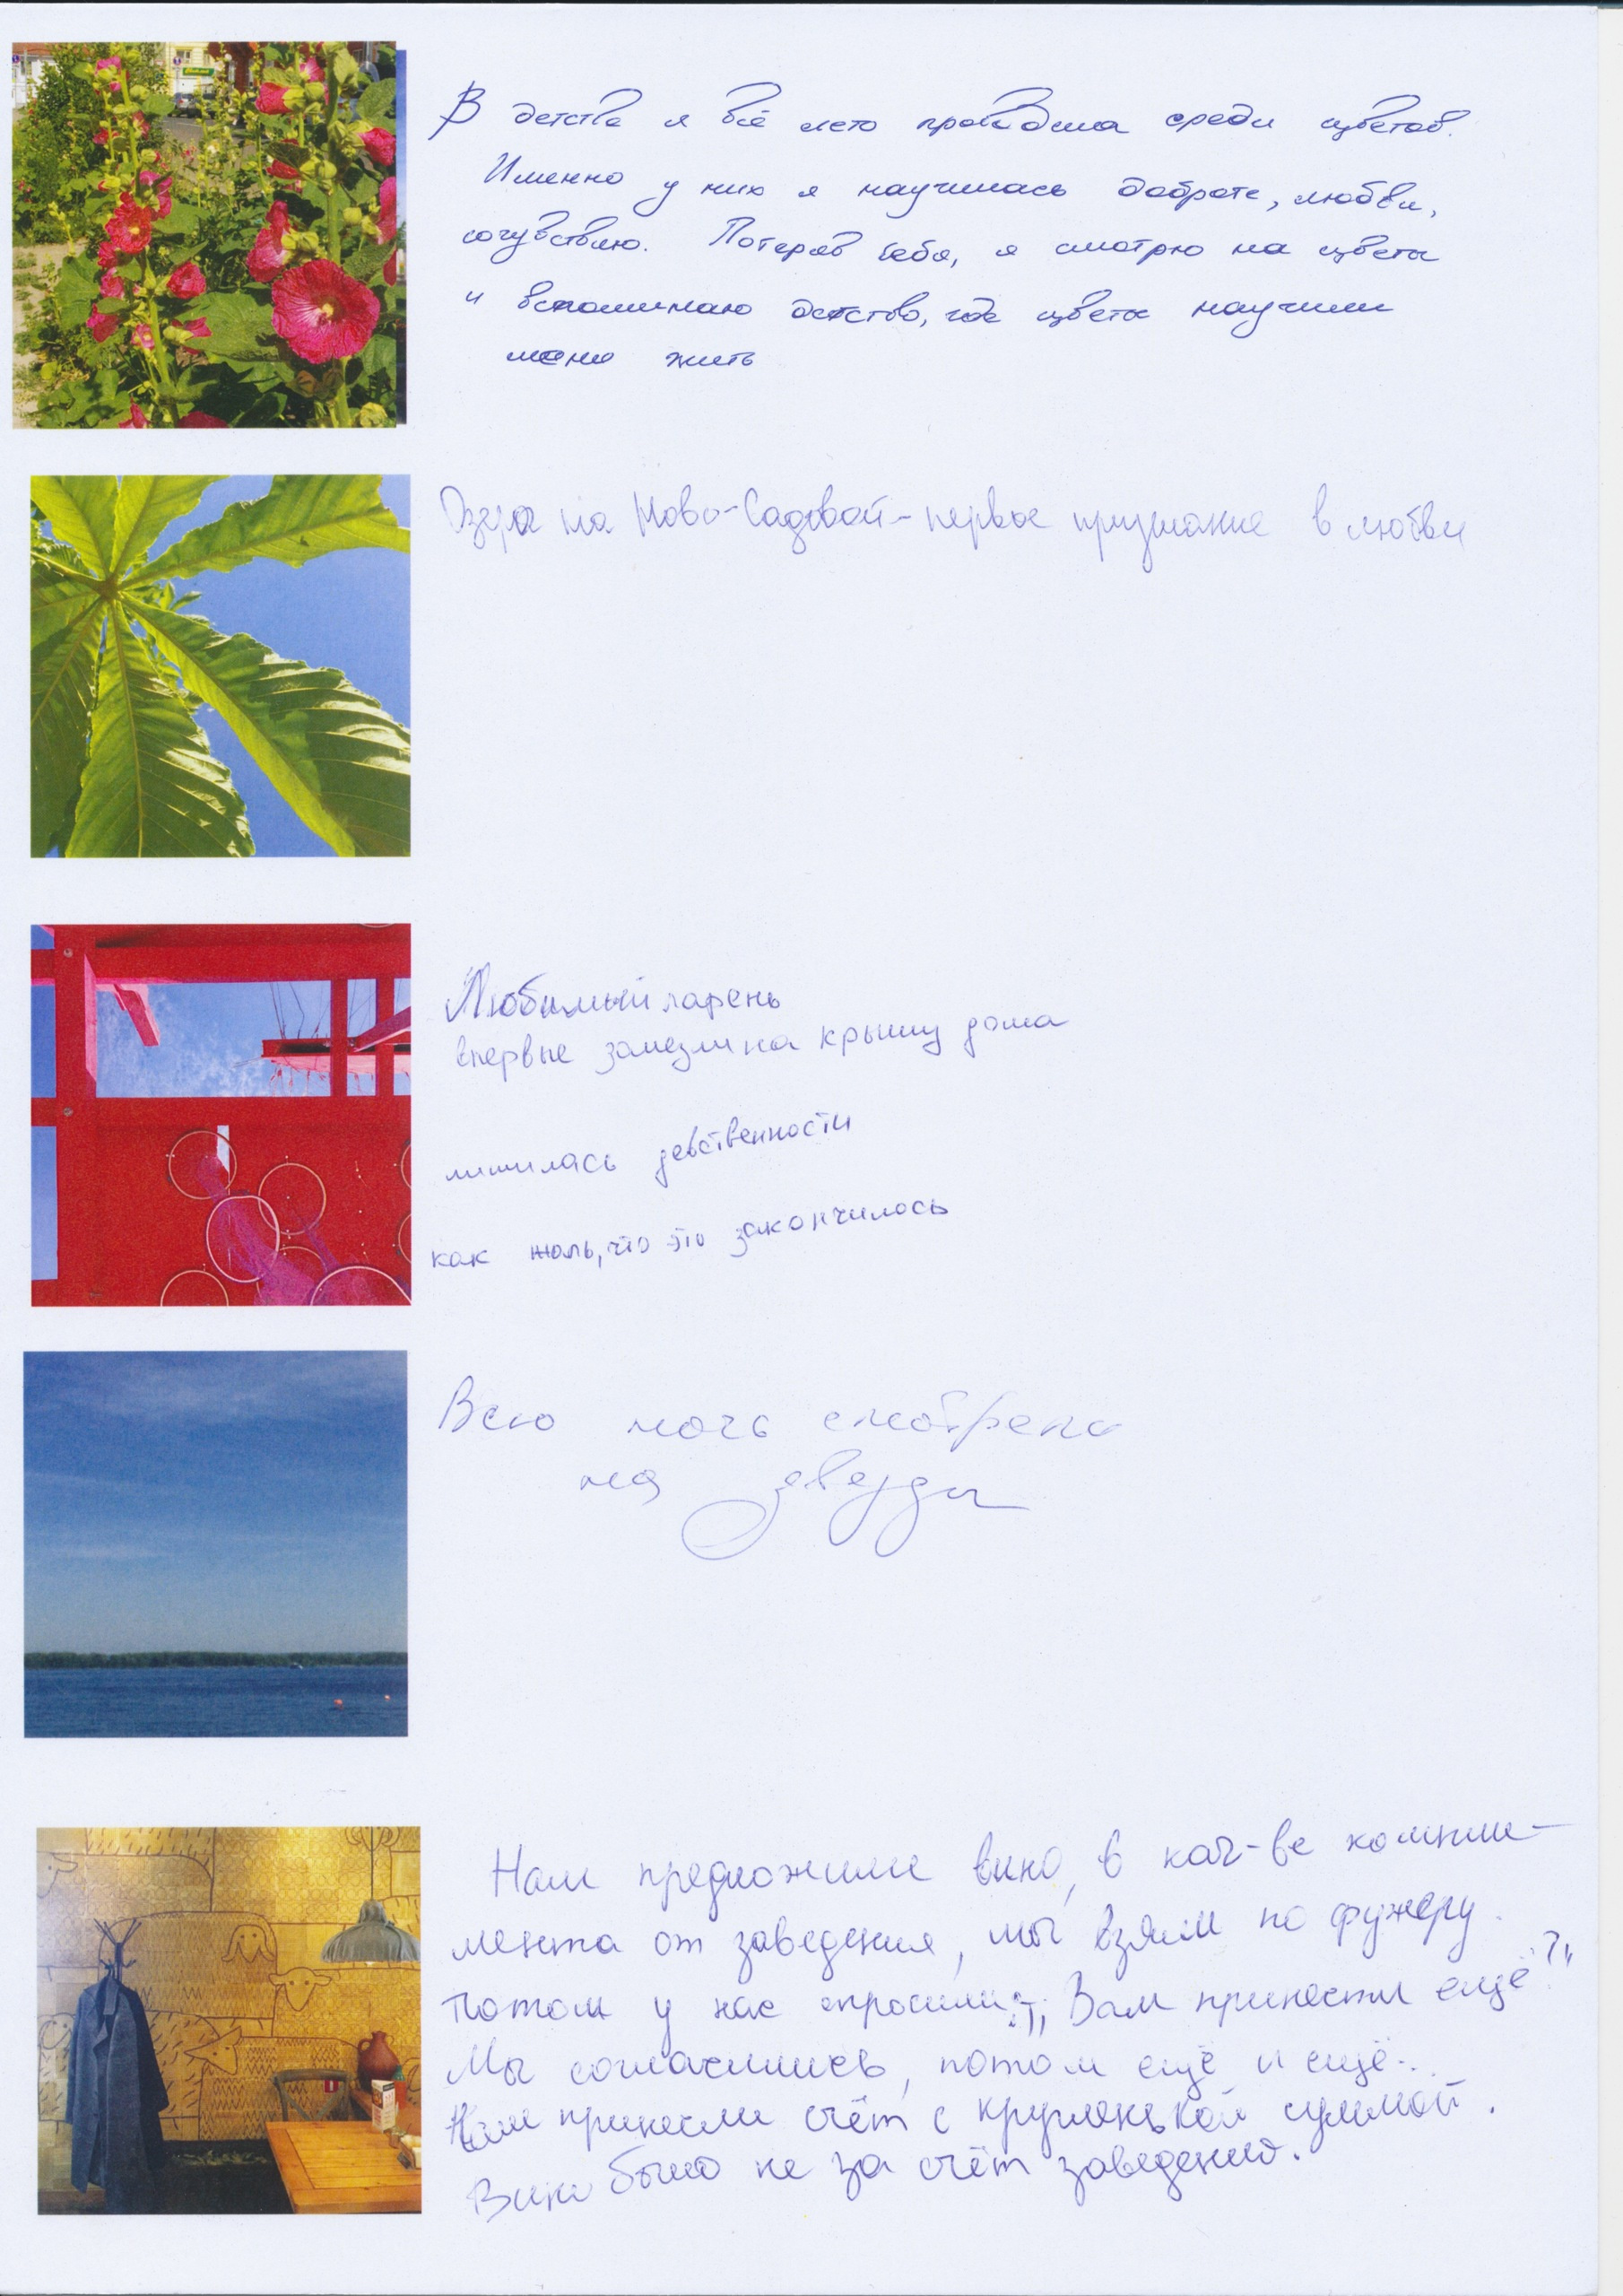 В детстве я всё лето проводила среди цветов.
Именно у них я научилась доброте, любви,
сочувствию. Потеряв себя, я смотрю на цветы
и вспоминаю детство, где цветы научили
меня жить
Озёра на Ново-Садовой - первое признание в любви
Любимый парень
впервые залезли на крышу дома
лишилась девственности
как жаль, что это закончилось
Всю ночь смотрела
на звезды
Нам предложили вино, в кач-ве компли-
мента от заведения, мы взяли по фужеру.
Потом у нас спросили: "Вам принести ещё?"
Мы согласились, потом ещё и ещё..
Нам принесли счёт с кругленькой суммой.
Вино было не за счёт заведения.